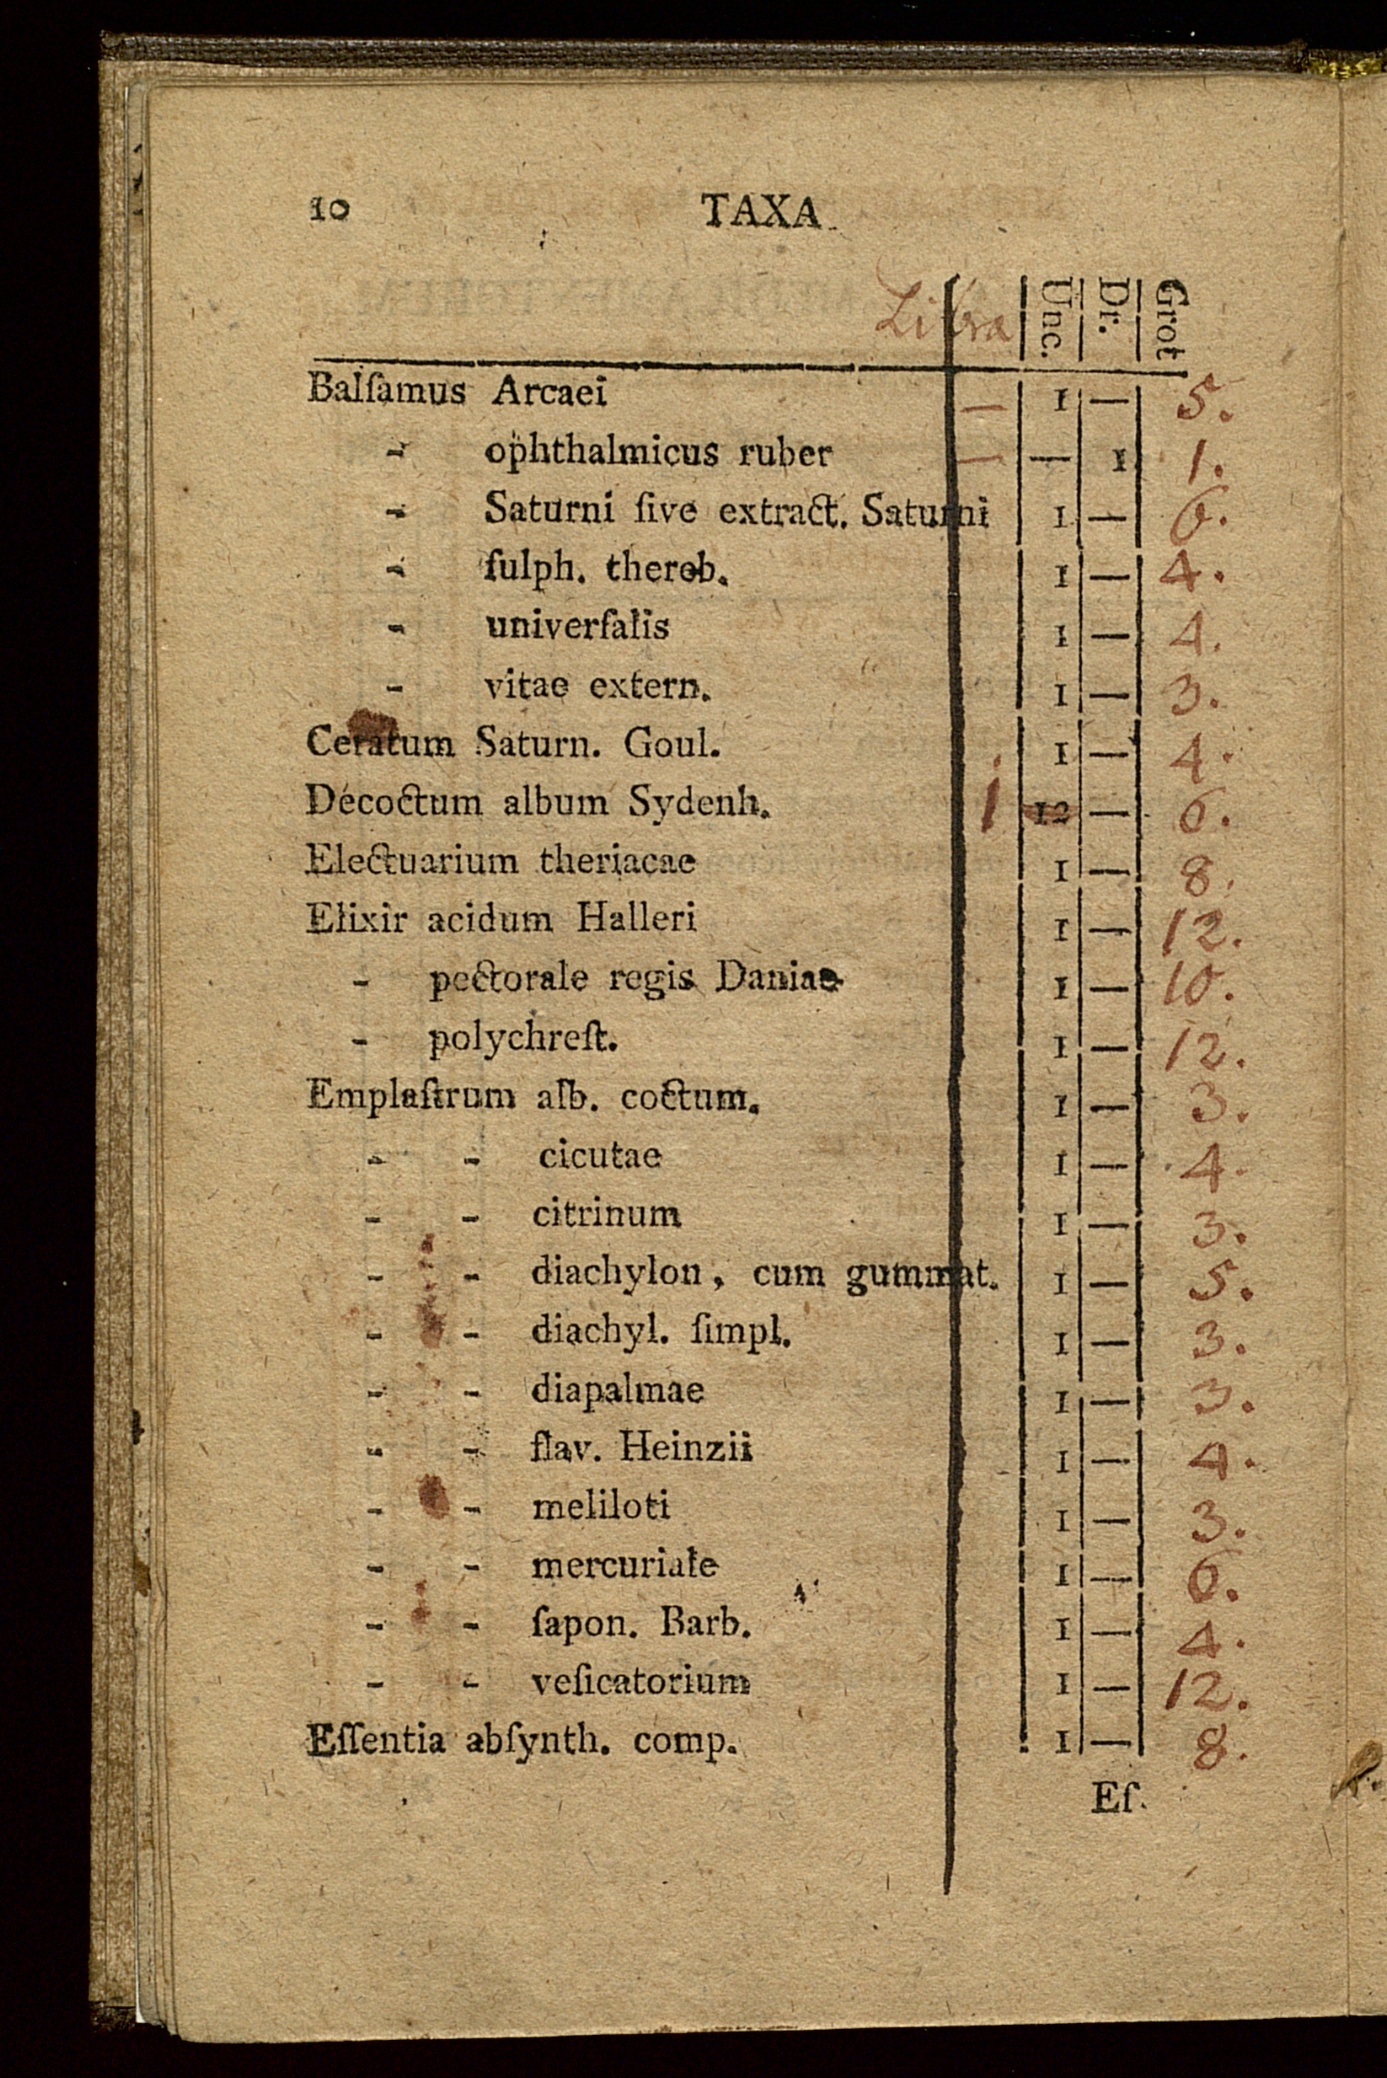 10 TAXA
Libra Unc. Dr. Grot
Balſamus Arcaei — 1 — 5.
- ophthalmicus ruber — — 1 1.
- Saturni ſive extract. Saturni 1 — 6.
- ſulph. thereb. 1 — 4.
- univerſalis 1 — 4.
- vitae extern. 1 — 3.
Ceratum Saturn. Goul. 1 — 4.
Decoctum album Sydenh. 1 12 — 6.
Electuarium theriacae 1 — 8.
Elixir acidum Halleri 1 — 12.
- pectorale regis Daniae 1 — 10.
- polychreſt. 1 — 12.
Emplaſtrum alb. coctum. 1 — 3.
- - cicutae 1 — 4.
- - citrinum 1 — 3.
- - diachylon, cum gummat. 1 — 5.
- - diachyl. ſimpl. 1 — 3.
- - diapalmae 1 — 3.
- - flav. Heinzii 1 — 4.
- - meliloti 1 — 3.
- - mercuriale 1 — 6.
- - ſapon. Barb. 1 — 4.
- - veſicatorium 1 — 12.
Eſſentia abſynth. comp. 1 — 8.
Eſ.